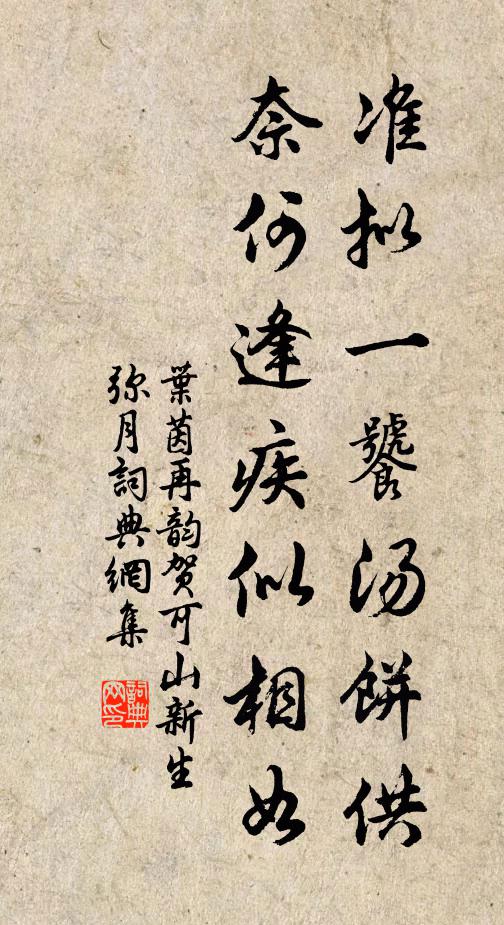 准拟一饕汤餅供
奈何逢疾似相如
葉茵再韵贺可山新生
弥月詞典網集
詞典网印